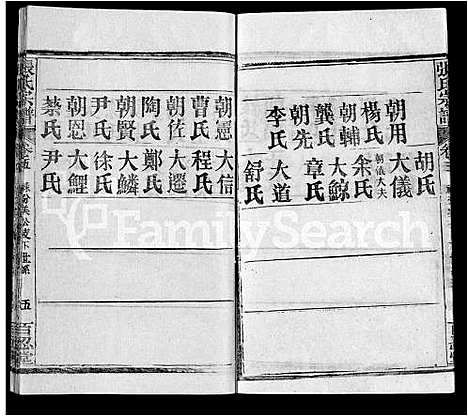 張氏宗譜
胡氏
朝用 大儀
楊氏 朝儀大夫
朝輔 余氏
龔氏 大鯨
朝先 章氏
李氏 大道
舒氏
朝憲 大信
曹氏 程氏
朝佐 大遷
陶氏 鄭氏
朝賢 大鱗
尹氏 徐氏
朝恩 大鯉
蔡氏 尹氏
張氏宗譜 卷五 公支下世系 五 百忍堂
FamilySearch